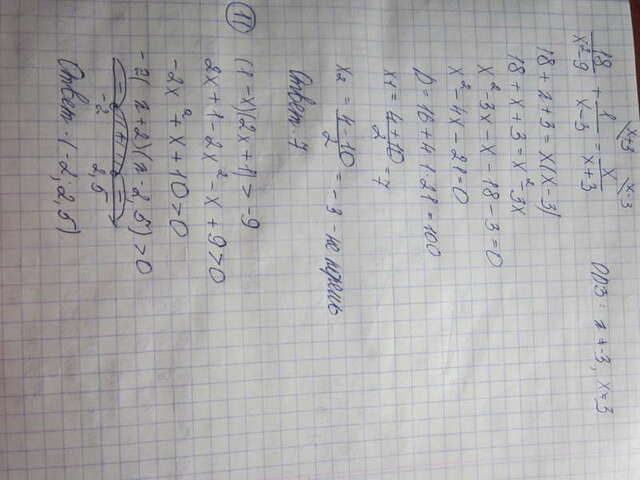 18/(x²-9) + 1/(x-3) = x/(x+3) ОДЗ: x≠-3, x≠3
18 + x + 3 = x(x-3)
18 + x + 3 = x² - 3x
x² - 3x - x - 18 - 3 = 0
x² - 4x - 21 = 0
D = 16 + 4·1·21 = 100
x₁ = (4+10)/2 = 7
x₂ = (4-10)/2 = -3 - не
Ответ: 7
11 (1-x)(2x+1) > -9
2x + 1 - 2x² - x + 9 > 0
-2x² + x + 10 > 0
-2(x+2)(x-2,5) > 0
- + -
-2 2,5
Ответ: (-2; 2,5)